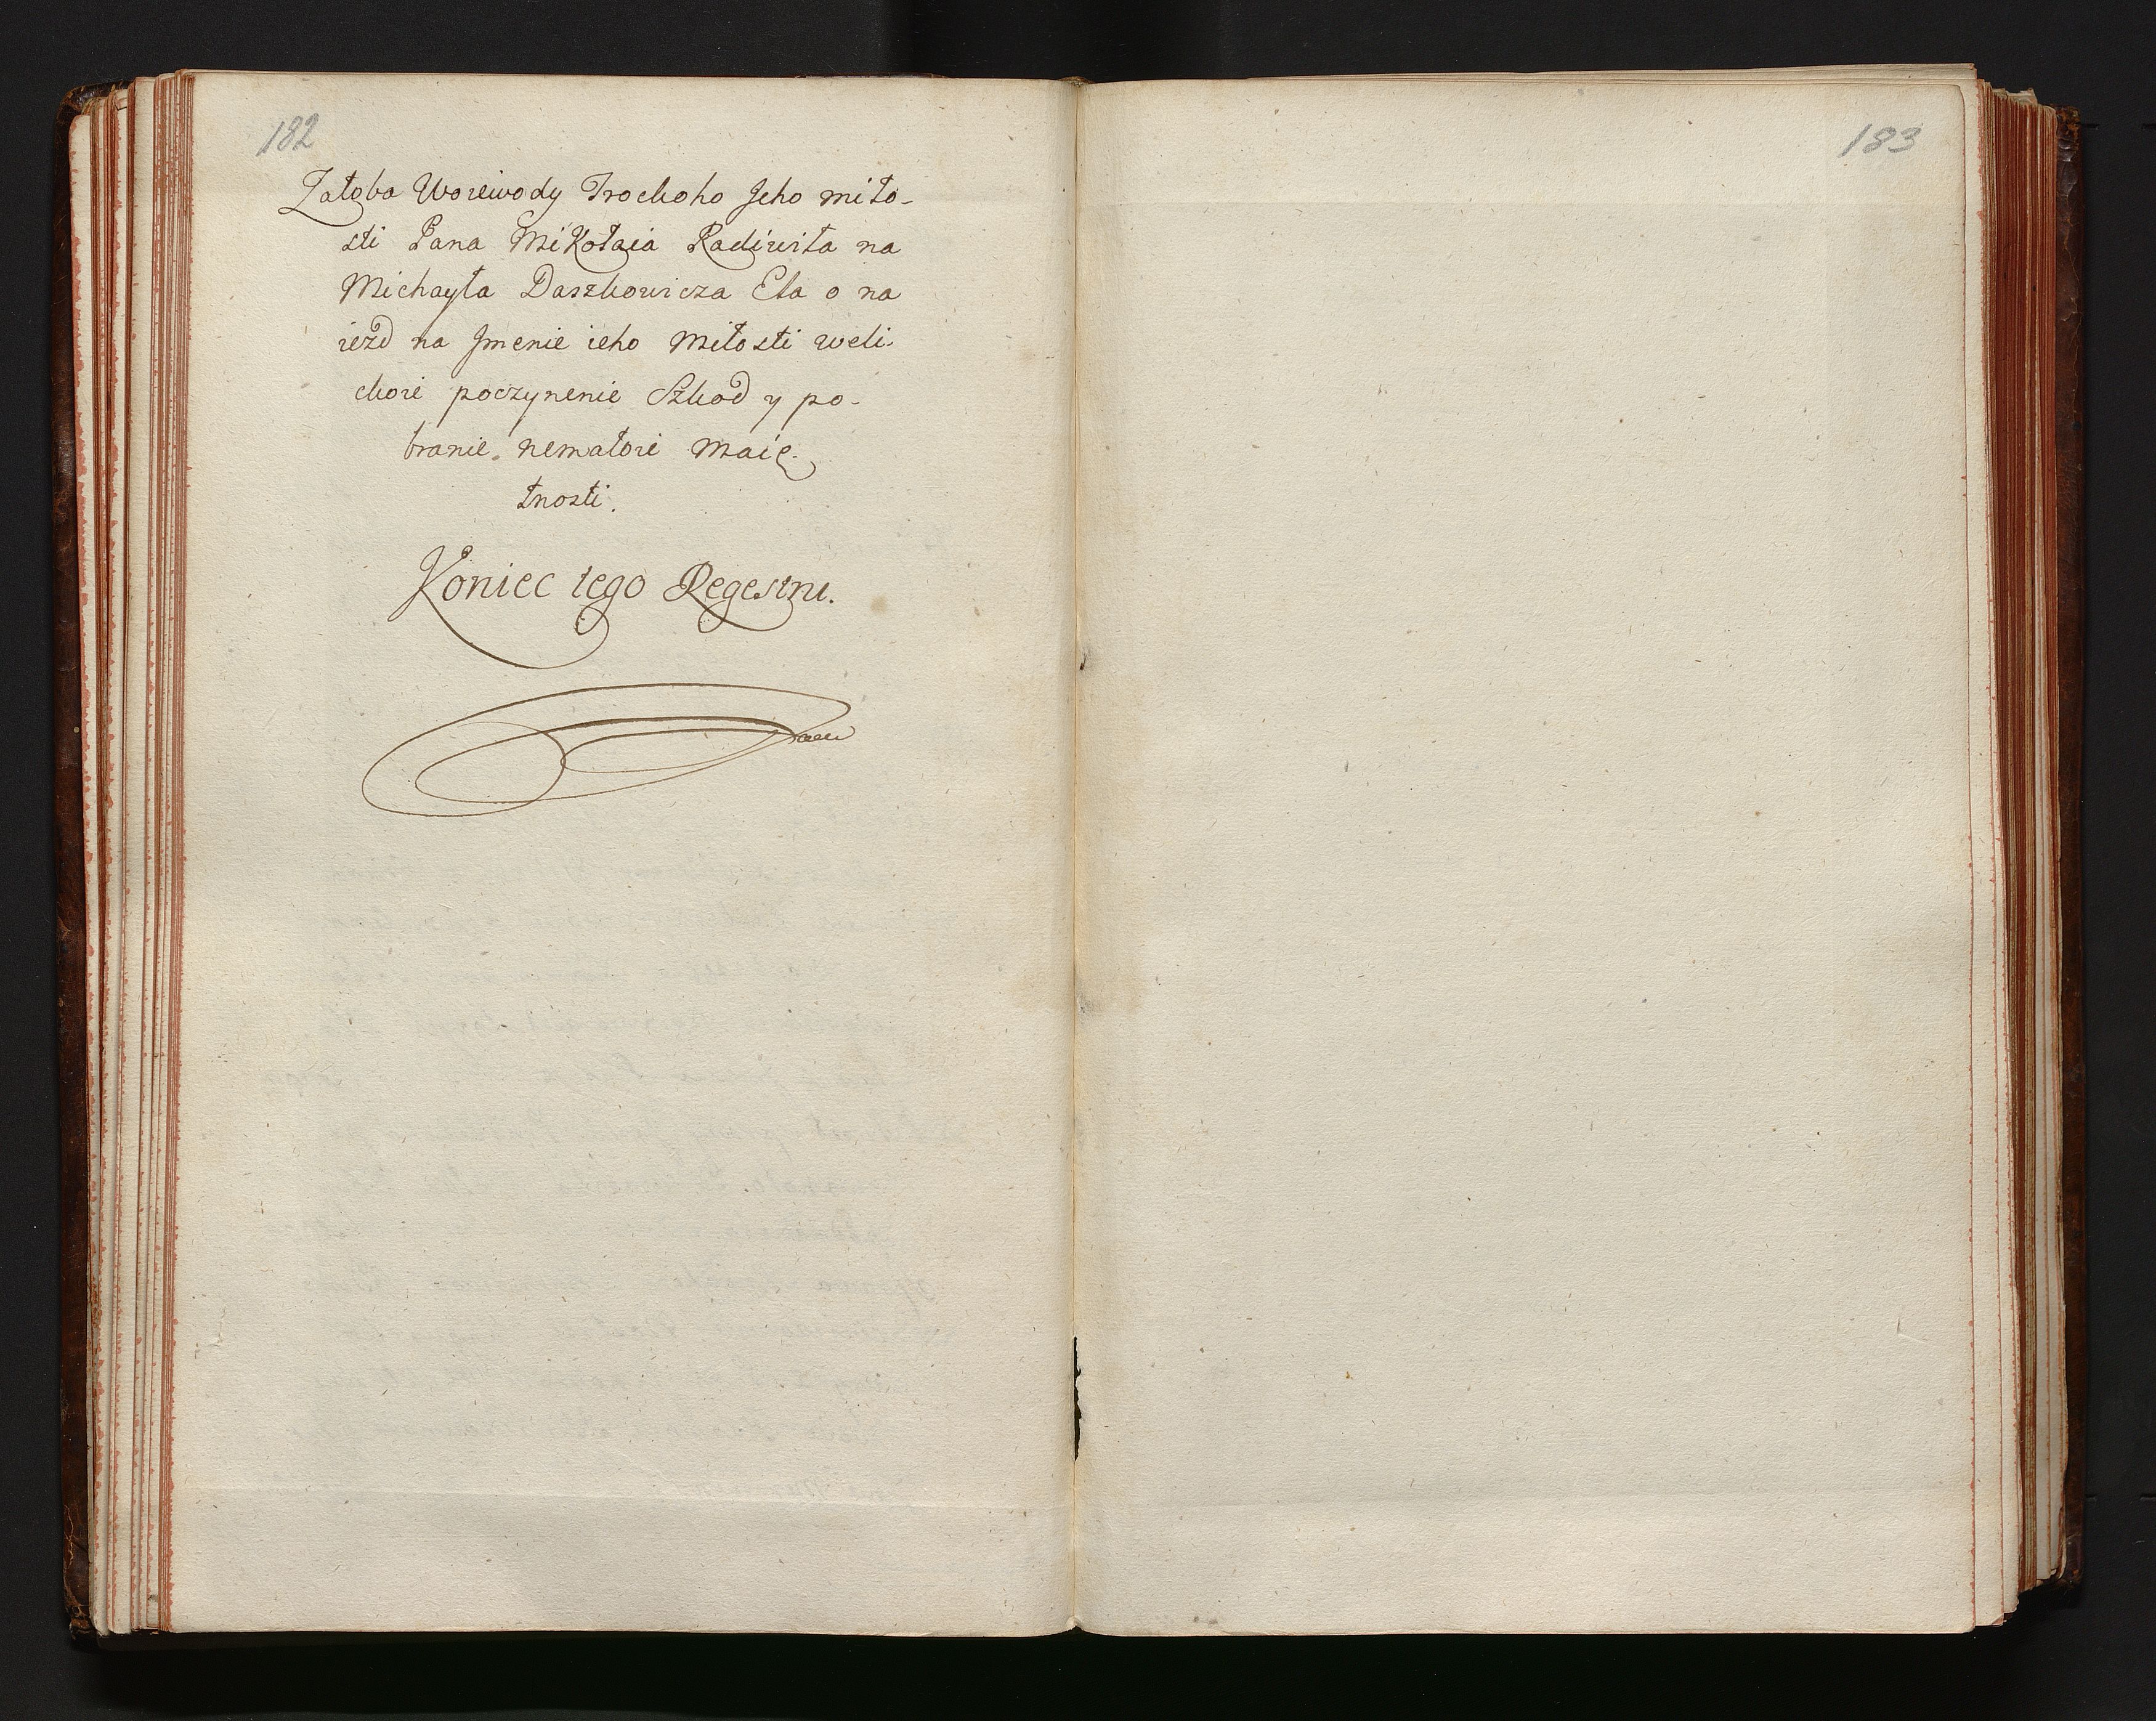 182
Załoba Woiewody Trockoho Jeho miło-
sti Pana Mikołaia Radiwiła na
Michayła Daszkowicza Eła o na
iezd na Jmenie ieho miłosti weli-
ckoie poczynenie Szkod y po-
branie nemałoie maię-
tnosti.
Koniec tego Regestru.
183